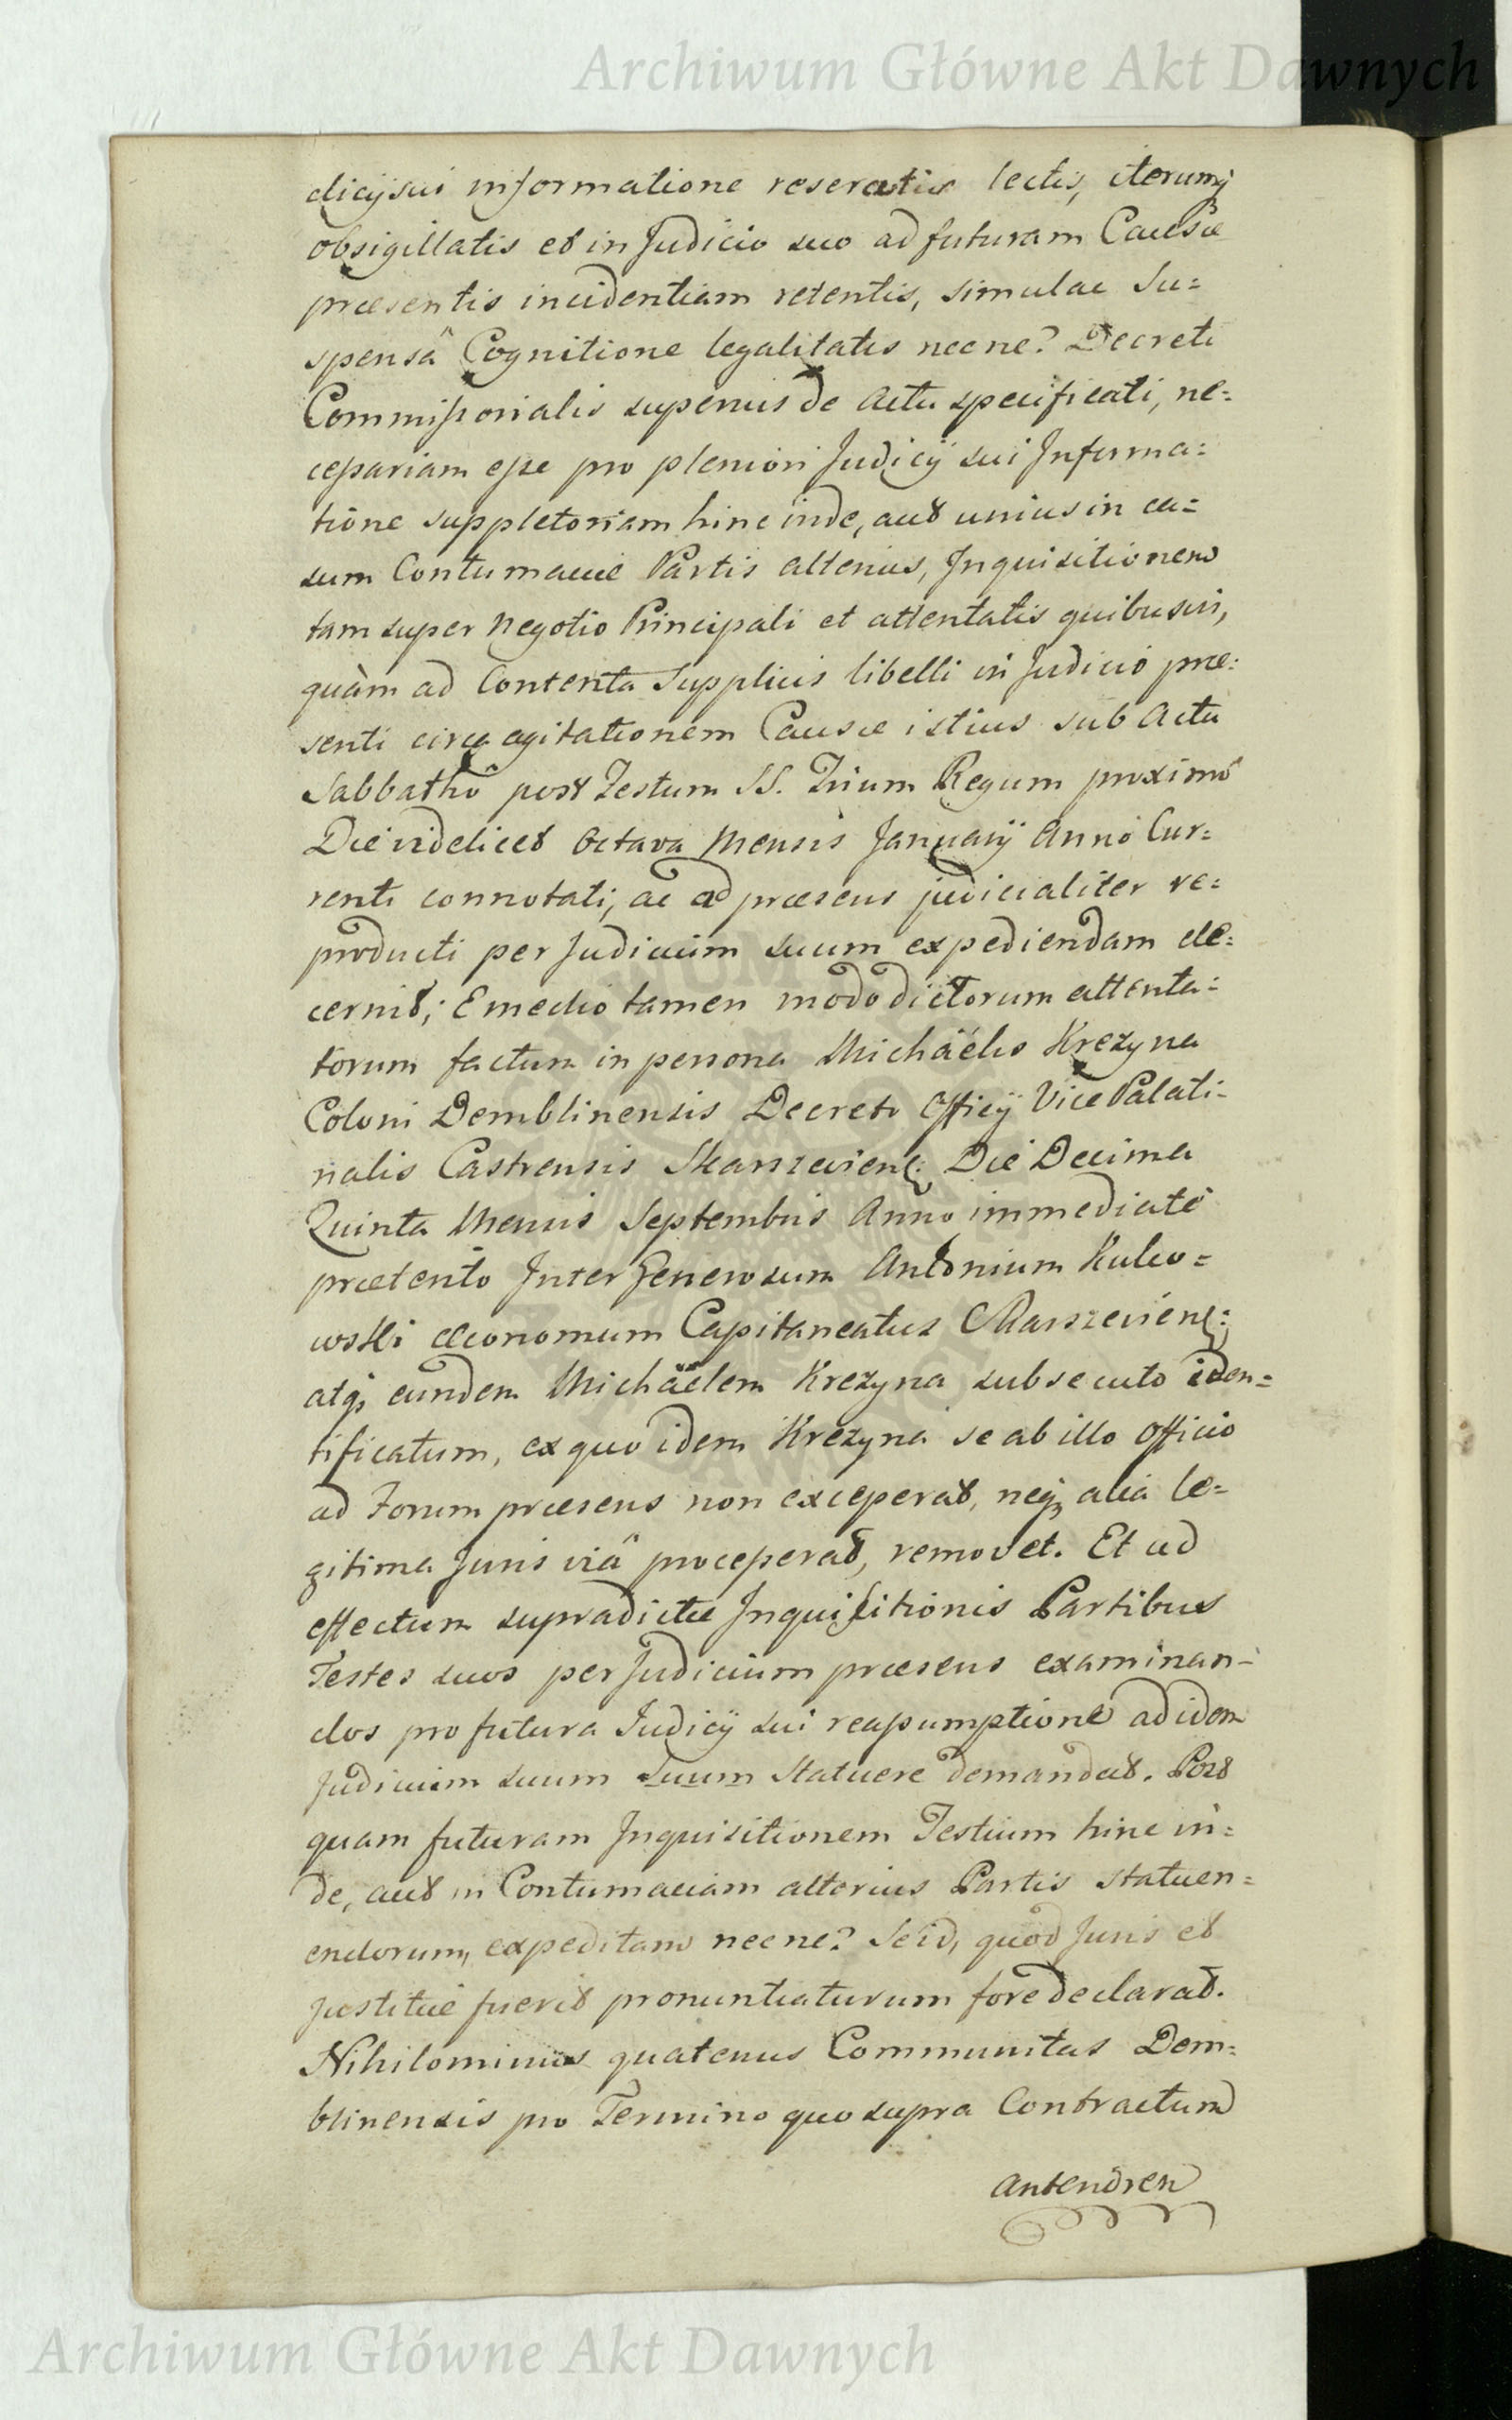 Archiwum Główne Akt Dawnych
dicÿ sui informatione reseratis lectis, iterumq;
obsigillatis et in Judicio suo ad futuram Causæ
præsentis incidentiam retentis, simulac Su=
spensâ Cognitione legalitatis necne? Decreti
Commissorialis superius de Actu specificati, ne=
cessariam esse pro pleniori Judicÿ sui Informa=
tione suppletoriam hinc inde, aut unius in ca=
sum Contumaciæ Partis alterius, Inquisitionem
tam super negotio Principali et attentatis quibusvis,
quàm ad Contenta Supplicis libelli in Judicio præ=
senti circa agitationem Causæ istius sub Actu
Sabbathô post Festum SS. Trium Regum proximô
Die videlicet Octava Mensis Januarÿ Anno Cur=
renti connotati, ac ad præsens judicialiter re=
producti per Judicium suum expediendam de=
cernit; E medio tamen modo dictorum attenta=
torum factum in persona Michäélis Krezyna
Coloni Demblinensis Decreto Officÿ Vice Palati=
nalis Castrensis Skarszeviens: Die Decima
Quinta Mensis Septembris Anno immediatè
præterito Inter Generosum Antonium Kulwo=
wski Œconomum Capitaneatus Skarszeviens:
atq; eundem Michäëlem Krezyna subsecuto iden=
tificatum, ex quo idem Krezyna se ab illo Officio
ad Forum præsens non exceperat, neq; alia le=
gitima Juris viâ processerat, removet. Et ad
effectum supradictæ Inquisitionis Partibus
Testes suos per Judicium præsens examinan=
dos pro futura Judicÿ sui reassumptione ad idem
Judicium suum suum statuere demandat. Post
quam futuram Inquisitionem Testium hinc in=
de, aut in Contumaciam alterius Partis statuen=
endorum, expeditam necne? Se id, quod Juris et
justitiæ fuerit pronuntiaturum fore declarat.
Nihilominus quatenus Communitas Dem=
blinensis pro Termino quo supra Contractum
Antendren
Archiwum Główne Akt Dawnych